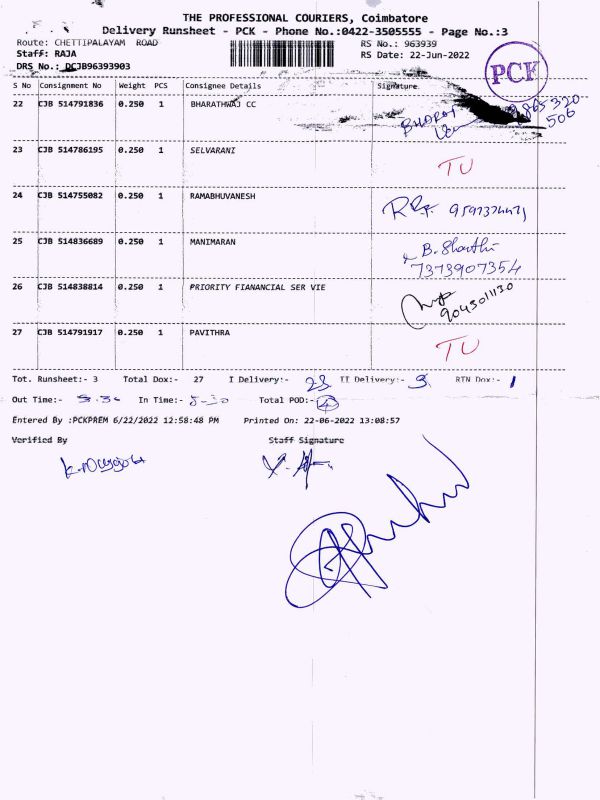 THE PROFESSIONAL COURIERS, Coimbatore
Delivery Runsheet - PCK - Phone No.:0422-3505555 - Page No.:3
Route: CHETTIPALAYAM ROAD RS No.: 963939
Staff: RAJA RS Date: 22-Jun-2022
DRS No.: DCJB96393903
PCK
S No Consignment No Weight PCS Consignee Details Signature
22 CJB 514791836 0.250 1 BHARATHWAJ CC
23 CJB 514786195 0.250 1 SELVARANI TU
24 CJB 514755082 0.250 1 RAMABHUVANESH
25 CJB 514836689 0.250 1 MANIMARAN B. Shanthi
7373907354
26 CJB 514838814 0.250 1 PRIORITY FIANANCIAL SER VIE 9043011130
27 CJB 514791917 0.250 1 PAVITHRA TU
Tot. Runsheet:- 3 Total Dox:- 27 I Delivery:- 23 II Delivery:- 3 RTN Dox:- 1
Out Time:- In Time:- 5-30 Total POD:- 4
Entered By :PCKPREM 6/22/2022 12:58:48 PM Printed On: 22-06-2022 13:08:57
Verified By Staff Signature